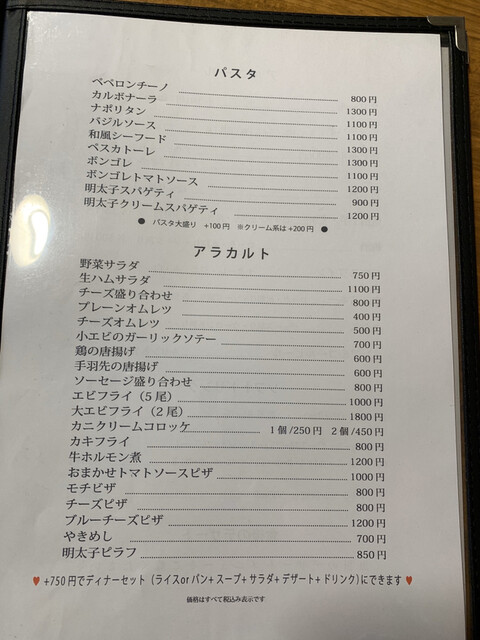 パスタ
ペペロンチーノ 800円
カルボナーラ 1300円
ナポリタン 1100円
バジルソース 1100円
和風シーフード 1300円
ペスカトーレ 1300円
ボンゴレ 1100円
ボンゴレトマトソース 1200円
明太子スパゲティ 900円
明太子クリームスパゲティ 1200円
● パスタ大盛り +100円 ※クリーム系は+200円 ●
アラカルト
野菜サラダ 750円
生ハムサラダ 1100円
チーズ盛り合わせ 800円
プレーンオムレツ 400円
チーズオムレツ 500円
小エビのガーリックソテー 700円
鶏の唐揚げ 600円
手羽先の唐揚げ 600円
ソーセージ盛り合わせ 800円
エビフライ(5尾) 1000円
大エビフライ(2尾) 1800円
カニクリームコロッケ 1個/250円 2個/450円
カキフライ 800円
牛ホルモン煮 1200円
おまかせトマトソースピザ 1000円
モチピザ 800円
チーズピザ 800円
ブルーチーズピザ 1200円
やきめし 700円
明太子ピラフ 850円
♥ +750円でディナーセット(ライスorパン+スープ+サラダ+デザート+ドリンク)にできます ♥
価格はすべて税込み表示です